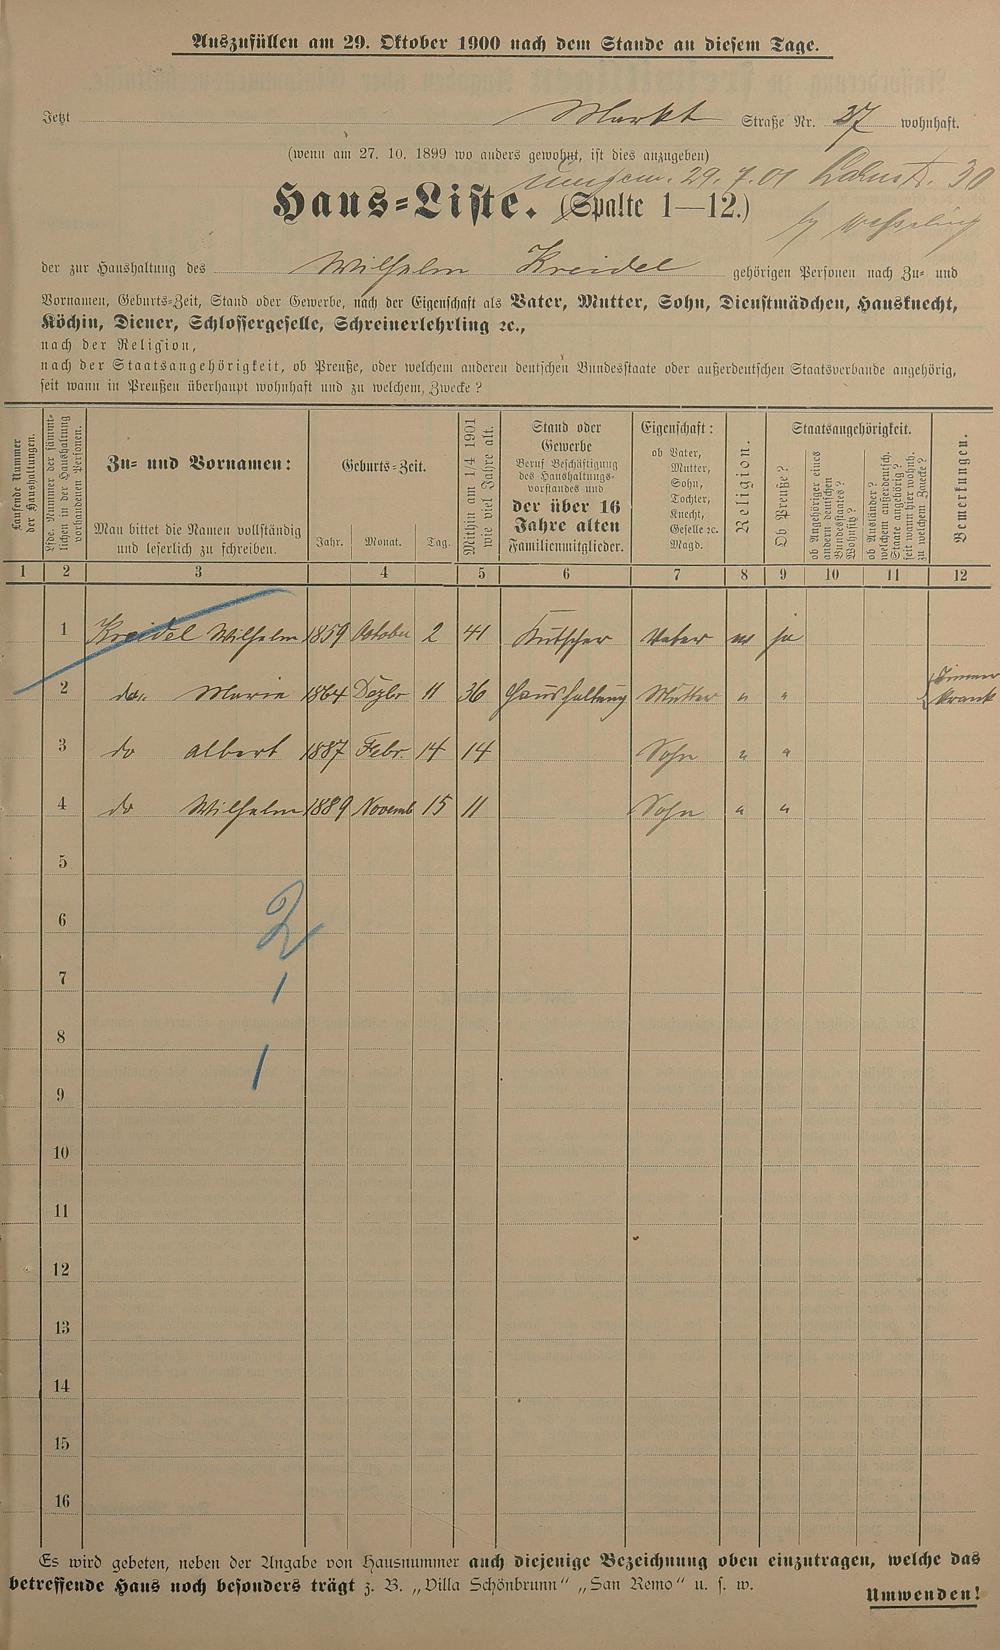 Auszufüllen am 29. Oktober 1900 nach dem Stande an diesem Tage.
Jetzt Markt Straße Nr. 27 wohnhaft.
(wenn am 27. 10. 1899 wo anders gewohnt, ist dies anzugeben)
29. 7. 01 30
Haus-Liste. (Spalte 1—12.)
der zur Haushaltung des Wilhelm Kreidel gehörigen Personen nach Zu- und
Vornamen, Geburts-Zeit, Stand oder Gewerbe, nach der Eigenschaft als Vater, Mutter, Sohn, Dienstmädchen, Hausknecht,
Köchin, Diener, Schlossergeselle, Schreinerlehrling ꝛc.,
nach der Religion,
nach der Staatsangehörigkeit, ob Preuße, oder welchem anderen deutschen Bundesstaate oder außerdeutschen Staatsverbande angehörig,
seit wann in Preußen überhaupt wohnhaft und zu welchem Zwecke?
Laufende Nummer
der Haushaltungen.
Lfde. Nummer der sämmt-
lichen in der Haushaltung
vorhandenen Personen.
Zu- und Vornamen:
Man bittet die Namen vollständig
und leserlich zu schreiben.
Geburts-Zeit.
Jahr. Monat. Tag.
Mithin am 1/4 1901
wie viel Jahre alt.
Stand oder
Gewerbe
Beruf Beschäftigung
des Haushaltungs-
vorstandes und
der über 16
Jahre alten
Familienmitglieder.
Eigenschaft:
ob Vater,
Mutter,
Sohn,
Tochter,
Knecht,
Geselle ꝛc.
Magd.
Religion.
Staatsangehörigkeit.
Ob Preuße?
ob Angehöriger eines
andern deutschen
Bundesstaates?
Wohnsitz?
ob Ausländer?
welchem außerdeutsch.
Staate angehörig?
seit wann hier wohnh.
zu welchem Zwecke?
Bemerkungen.
1 2 3 4 5 6 7 8 9 10 11 12
1 Kreidel Wilhelm 1859 October 2 41 Kutscher Vater ja
2 do. Maria 1864 Dezbr 11 36 Haushaltung Mutter " " krank
3 do Albert 1887 Febr. 14 14 Sohn " "
4 do Wilhelm 1889 Novemb 15 11 Sohn " "
5
6 2
7 1
8
9 1
10
11
12
13
14
15
16
Es wird gebeten, neben der Angabe von Hausnummer auch diejenige Bezeichnung oben einzutragen, welche das
betreffende Haus noch besonders trägt z. B. „Villa Schönbrunn“ „San Remo“ u. s. w.
Umwenden!